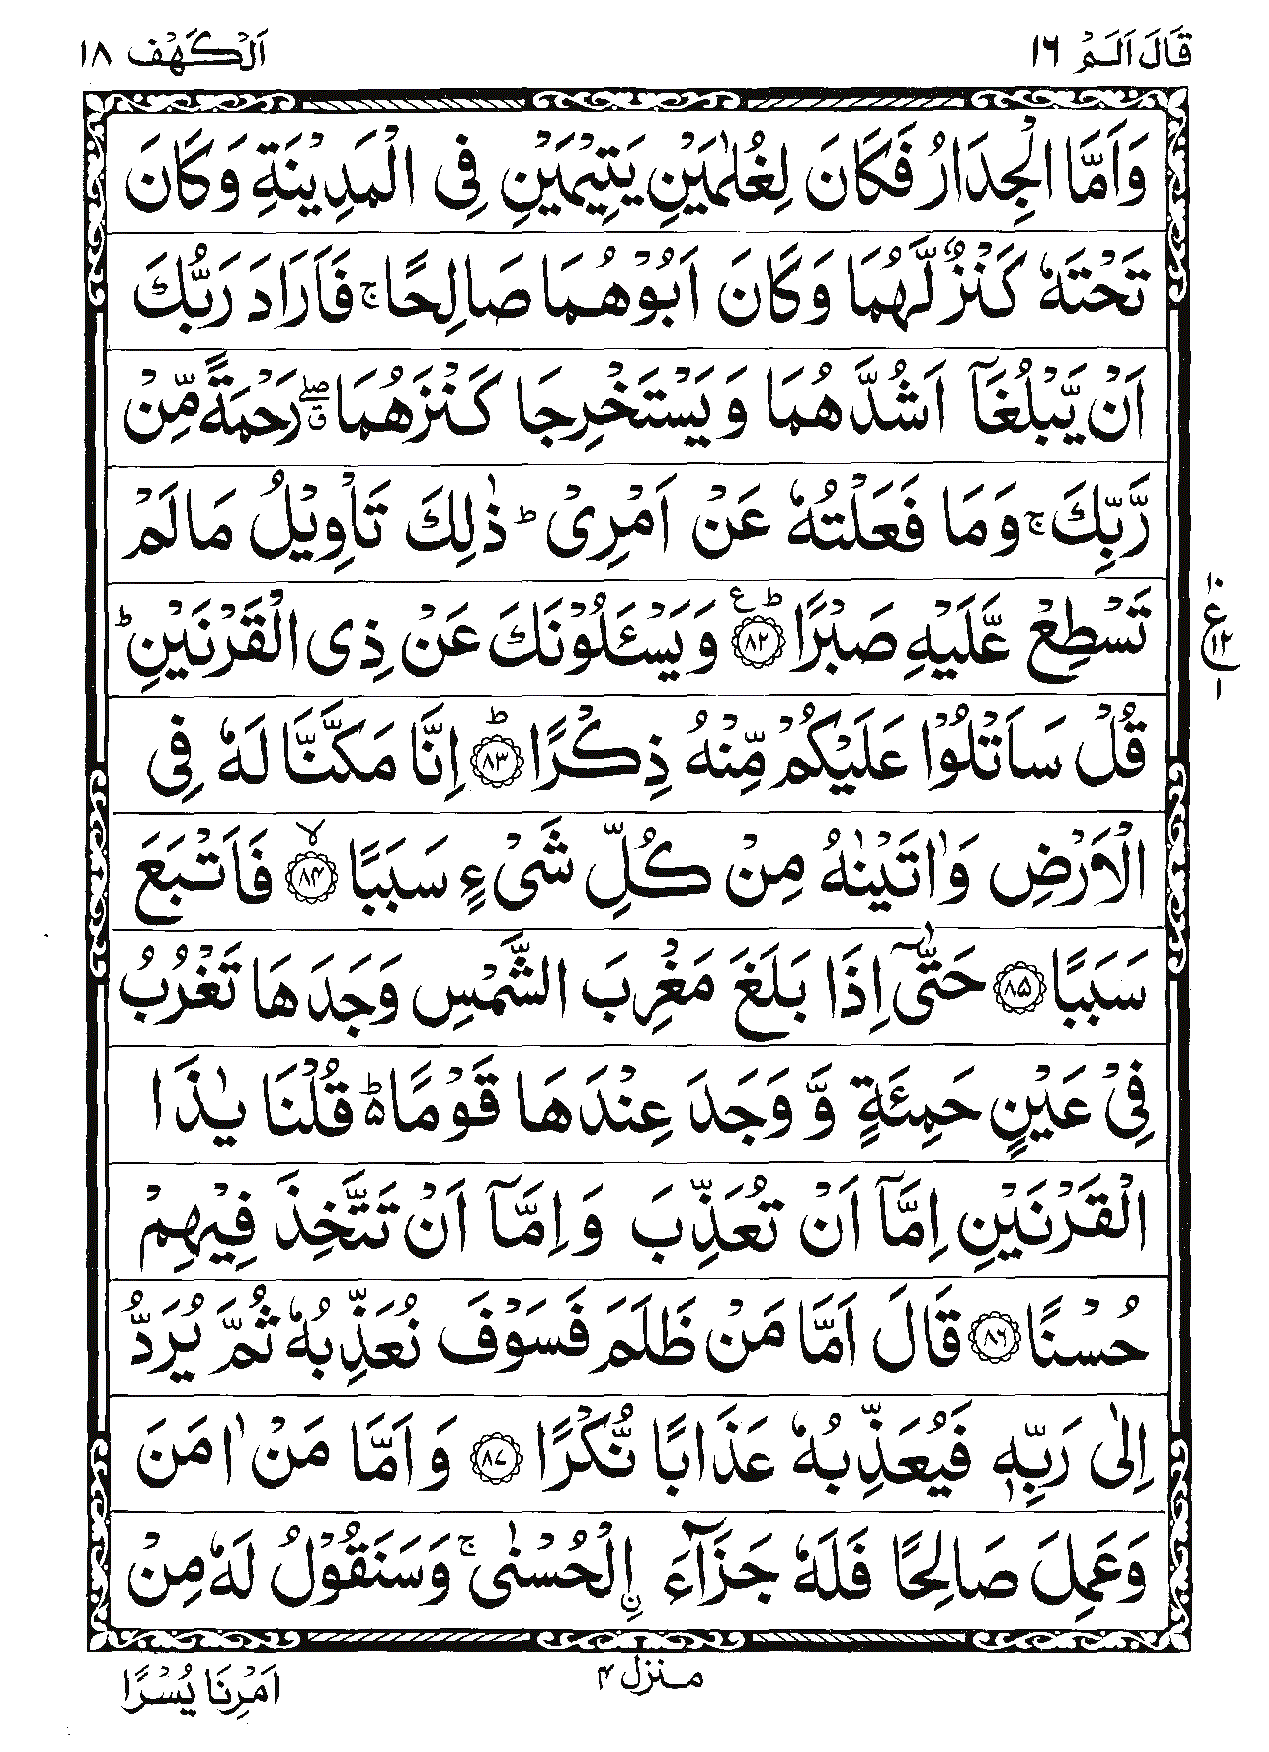 قَالَ اَلَمْ ١٦
اَلْكَهْف ١٨
وَاَمَّا الْجِدَارُ فَكَانَ لِغُلٰمَيْنِ يَتِيْمَيْنِ فِى الْمَدِيْنَةِ وَكَانَ
تَحْتَهٗ كَنْزٌ لَّهُمَا وَكَانَ اَبُوْهُمَا صَالِحًا ۚ فَاَرَادَ رَبُّكَ
اَنْ يَّبْلُغَاۤ اَشُدَّهُمَا وَيَسْتَخْرِجَا كَنْزَهُمَا ۖق رَحْمَةً مِّنْ
رَّبِّكَ ۚ وَمَا فَعَلْتُهٗ عَنْ اَمْرِىْ ؕ ذٰلِكَ تَاْوِيْلُ مَا لَمْ
تَسْطِعْ عَّلَيْهِ صَبْرًا ؕع ﴿۸۲﴾ وَيَسْـَٔلُوْنَكَ عَنْ ذِى الْقَرْنَيْنِ ؕ
١٠
ع
١٢
١
قُلْ سَاَتْلُوْا عَلَيْكُمْ مِّنْهُ ذِكْرًا ؕ ﴿۸۳﴾ اِنَّا مَكَّنَّا لَهٗ فِى
الْاَرْضِ وَاٰتَيْنٰهُ مِنْ كُلِّ شَىْءٍ سَبَبًا ۙ ﴿۸۴﴾ فَاَتْبَعَ
سَبَبًا ﴿۸۵﴾ حَتّٰۤى اِذَا بَلَغَ مَغْرِبَ الشَّمْسِ وَجَدَهَا تَغْرُبُ
فِىْ عَيْنٍ حَمِئَةٍ وَّوَجَدَ عِنْدَهَا قَوْمًا ؕ۬ قُلْنَا يٰذَا
الْقَرْنَيْنِ اِمَّاۤ اَنْ تُعَذِّبَ وَاِمَّاۤ اَنْ تَتَّخِذَ فِيْهِمْ
حُسْنًا ﴿۸۶﴾ قَالَ اَمَّا مَنْ ظَلَمَ فَسَوْفَ نُعَذِّبُهٗ ثُمَّ يُرَدُّ
اِلٰى رَبِّهٖ فَيُعَذِّبُهٗ عَذَابًا نُّكْرًا ﴿۸۷﴾ وَاَمَّا مَنْ اٰمَنَ
وَعَمِلَ صَالِحًا فَلَهٗ جَزَآءَ ۨالْحُسْنٰى ۚ وَسَنَقُوْلُ لَهٗ مِنْ
منزل ۴
اَمْرِنَا يُسْرًا